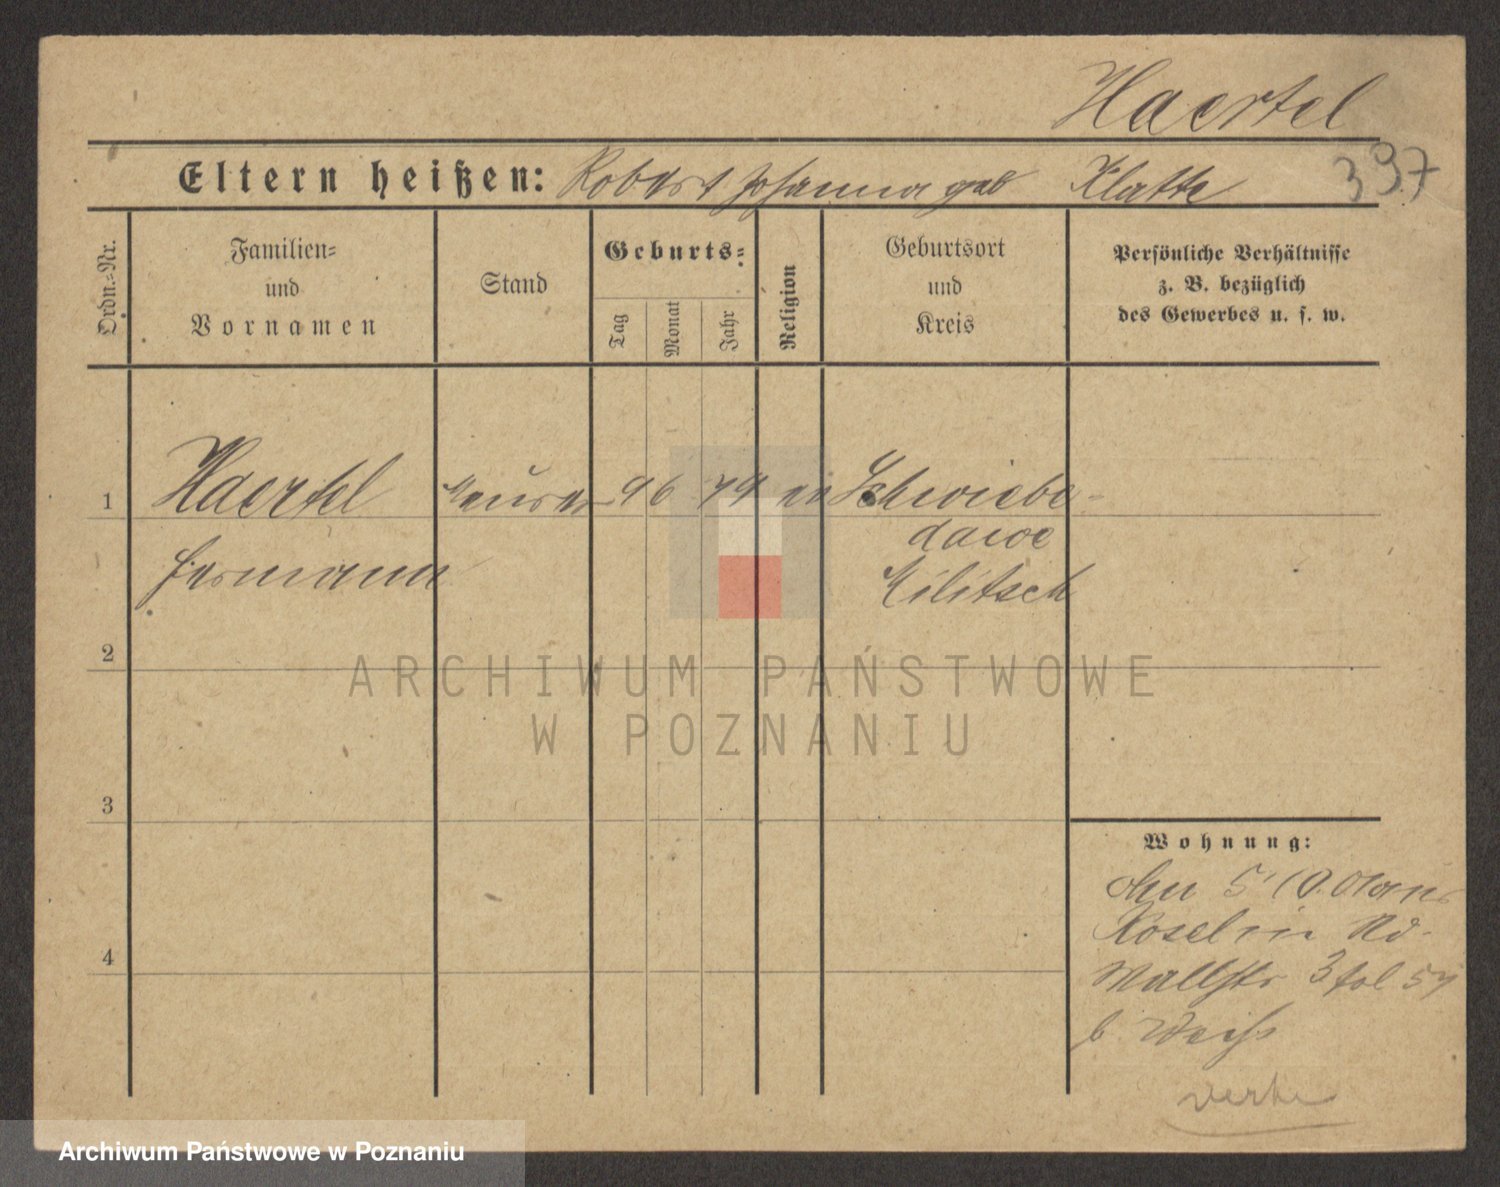 Haertel
397
Eltern heißen: Robert Johanna geb Klatte
Ordn.-Nr.
Familien-
und
Vornamen
Stand
Geburts-
Tag
Monat
Jahr
Religion
Geburtsort
und
Kreis
Persönliche Verhältnisse
z. B. bezüglich
des Gewerbes u. s. w.
1
Haertel Maurer 9 6 79 ev Schwiebe-
dawe
Hermann Militsch
2
ARCHIWUM PAŃSTWOWE
W POZNANIU
3
Wohnung:
5/10.
Koselin
Wallstr 3
4
b. Weiß
Archiwum Państwowe w Poznaniu